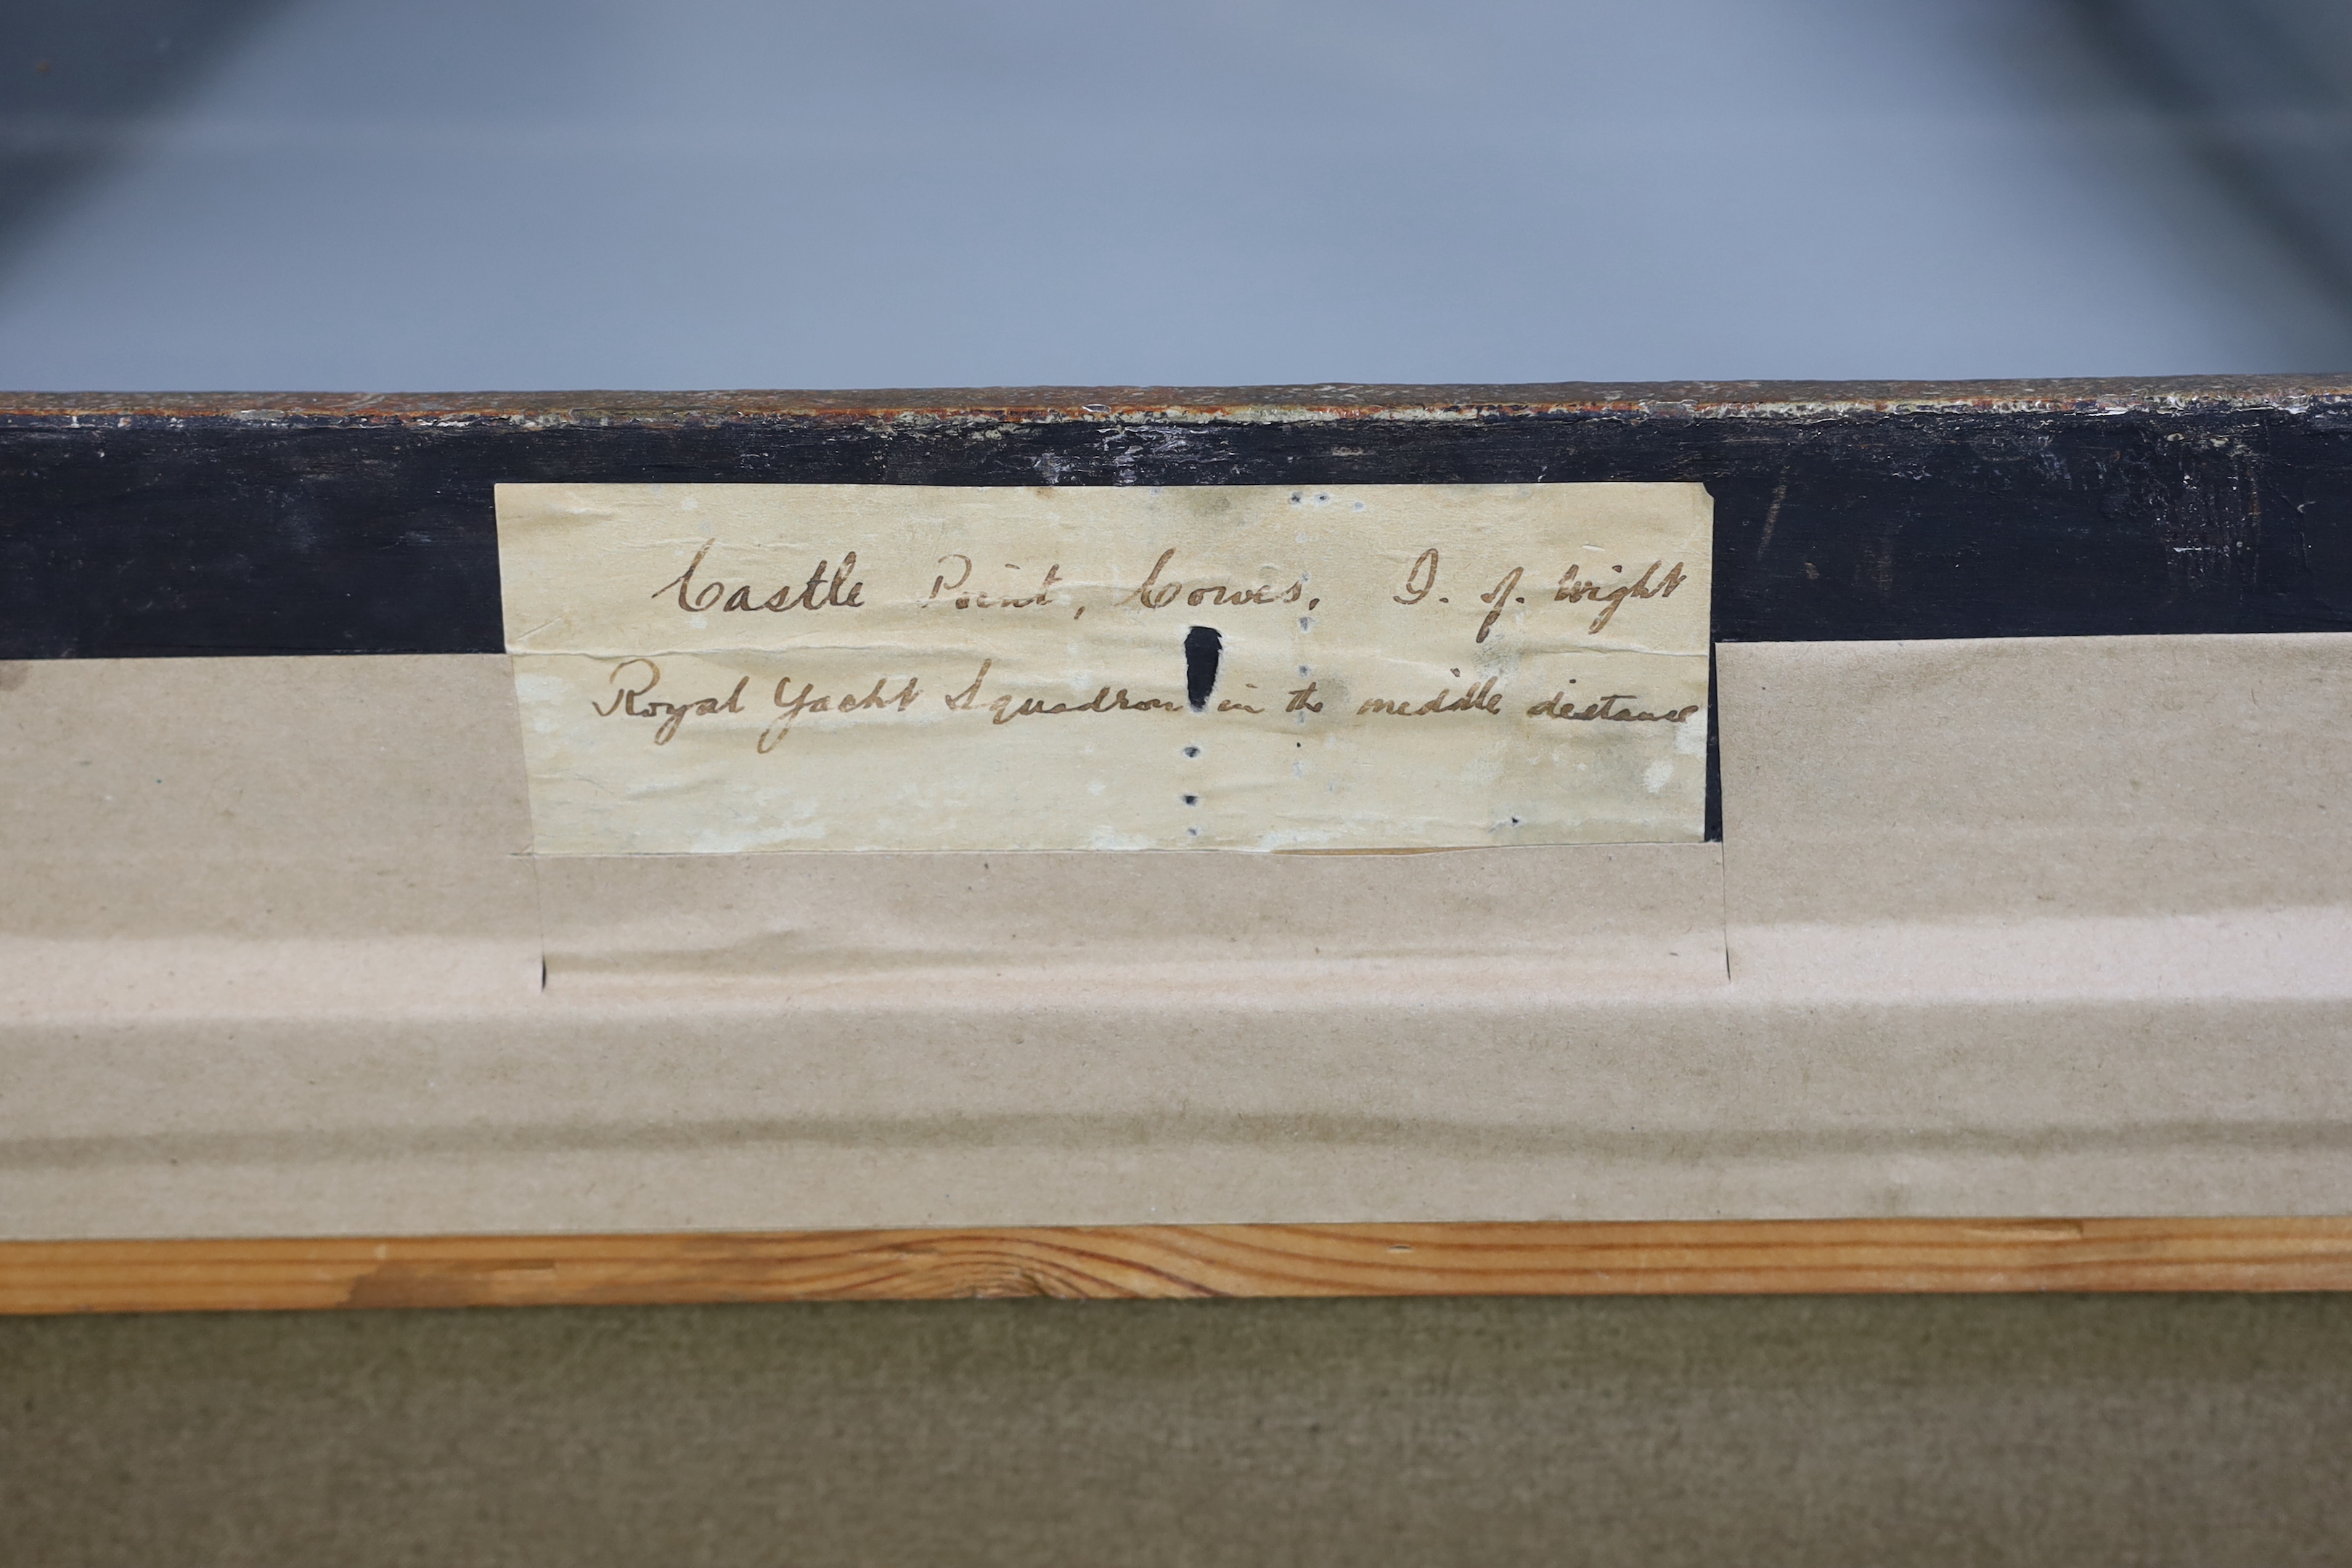 Castle Point, Cowes, I. of. Wight
Royal Yacht Squadron in the middle distance